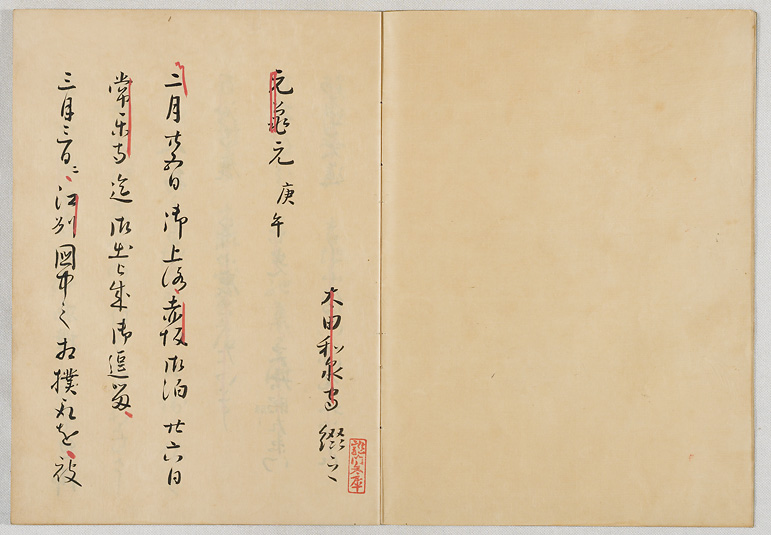 太田和泉守 綴之
元龜元 庚午
二月廿五日 御上洛 赤坂御泊 廿六日
常楽寺迄 御出被成 御逗留
三月三日ニ 江州國中之相撲取を被